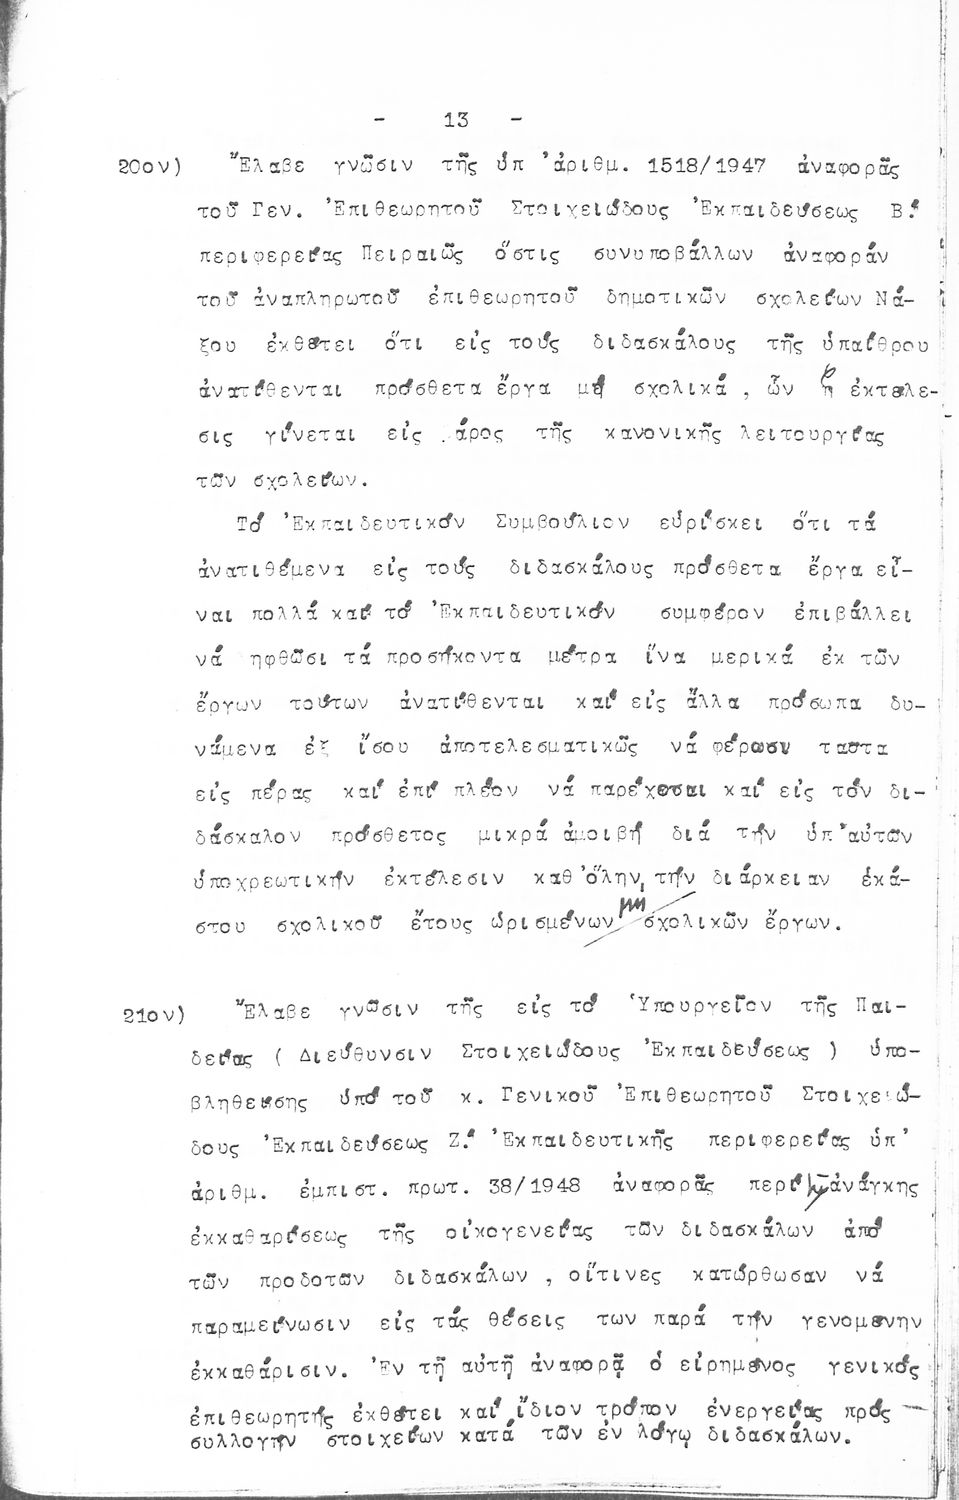 - 13 -
20ον) Ἔλαβε γνῶσιν τῆς ὑπ' ἀριθμ. 1518/1947 ἀναφορᾶς
τοῦ Γεν. Ἐπιθεωρητοῦ Στοιχειώδους Ἐκπαιδεύσεως Β.'
περιφερείας Πειραιῶς ὅστις συνυποβάλλων ἀναφοράν
τοῦ ἀναπληρωτοῦ ἐπιθεωρητοῦ δημοτικῶν σχολείων Νά-
ξου ἐκθέτει ὅτι εἰς τούς διδασκάλους τῆς ὑπαίθρου
ἀνατίθενται πρόσθετα ἔργα μή σχολικά, ὧν ἡ ἐκτέλε-
σις γίνεται εἰς άρος τῆς κανονικῆς λειτουργίας
τῶν σχολείων.
Τό Ἐκπαιδευτικόν Συμβούλιον εὑρίσκει ὅτι τά
ἀνατιθέμενα εἰς τούς διδασκάλους πρόσθετα ἔργα εἶ-
ναι πολλά καί τό Ἐκπαιδευτικόν συμφέρον ἐπιβάλλει
νά ηφθῶσι τά προσήκοντα μέτρα ἵνα μερικά ἐκ τῶν
ἔργων τούτων ἀνατίθενται καί εἰς ἄλλα πρόσωπα δυ-
νάμενα ἐξ ἴσου ἀποτελεσματικῶς νά φέρωσν ταῦτα
εἰς πέρας καί ἐπί πλέον νά παρέχεται καί εἰς τόν δι-
δάσκαλον πρόσθετος μικρά ἀμοιβή διά τήν ὑπ'αὐτῶν
ὑποχρεωτικήν ἐκτέλεσιν καθ'ὅλην, τήν διάρκειαν ἑκά-
στου σχολικοῦ ἔτους ὡρισμένων μή σχολικῶν ἔργων.
21ον) Ἔλαβε γνῶσιν τῆς εἰς τό Ὑπουργεῖον τῆς Παι-
δείας ( Διεύθυνσιν Στοιχειώδους Ἐκπαιδεύσεως ) ὑπο-
βληθείσης ὑπό τοῦ κ. Γενικοῦ Ἐπιθεωρητοῦ Στοιχειώ-
δους Ἐκπαιδεύσεως Ζ.' Ἐκπαιδευτικῆς περιφερείας ὑπ'
ἀριθμ. ἐμπιστ. πρωτ. 38/1948 ἀναφορᾶς περί ἀνάγκης
ἐκκαθαρίσεως τῆς οἰκογενείας τῶν διδασκάλων ἀπό
τῶν προδοτῶν διδασκάλων , οἵτινες κατώρθωσαν νά
παραμείνωσιν εἰς τάς θέσεις των παρά τήν γενομένην
ἐκκαθάρισιν. Ἐν τῇ αὐτῇ ἀναφορᾷ ὁ εἰρημένος γενικός
ἐπιθεωρητής ἐκθέτει καί ἴδιον τρόπον ἐνεργείας πρός
συλλογήν στοιχείων κατά τῶν ἐν λόγῳ διδασκάλων.